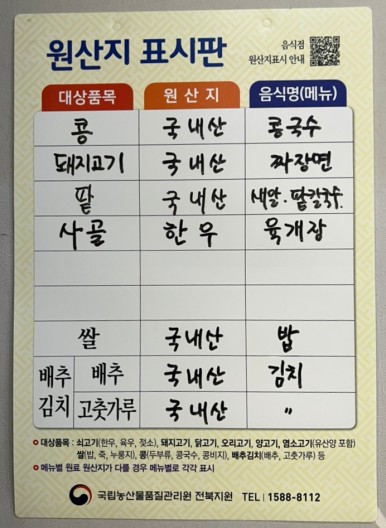 원산지 표시판
음식점
원산지표시 안내
대상품목 원산지 음식명(메뉴)
콩 국내산 콩국수
돼지고기 국내산 짜장면
팥 국내산 새알·팥칼국수
사골 한우 육개장
쌀 국내산 밥
배추김치 배추 국내산 김치
고춧가루 국내산 〃
대상품목 : 쇠고기(한우, 육우, 젖소), 돼지고기, 닭고기, 오리고기, 양고기, 염소고기(유산양 포함)
쌀(밥, 죽, 누룽지), 콩(두부류, 콩국수, 콩비지), 배추김치(배추, 고춧가루) 등
메뉴별 원료 원산지가 다를 경우 메뉴별로 각각 표시
국립농산물품질관리원 전북지원 TEL 1588-8112